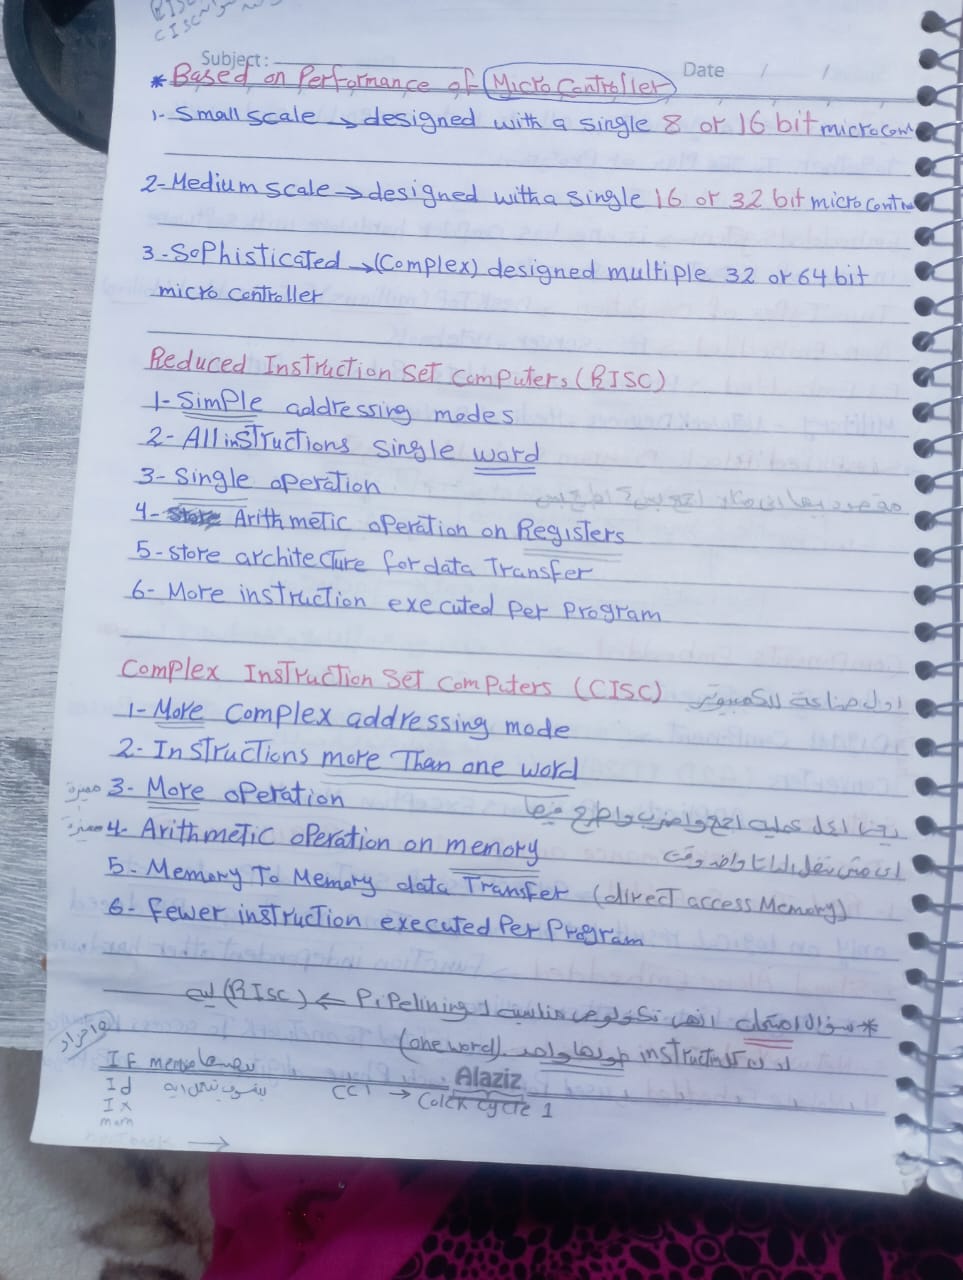 RISC
CISC
Subject :
Date / /
* Based on Performance of MicroController
1- Small scale → designed with a single 8 or 16 bit microcont
2- Medium scale → designed with a single 16 or 32 bit microcontro
3- Sophisticated → (Complex) designed multiple 32 or 64 bit
micro controller
Reduced Instruction Set Computers (RISC)
1- Simple addressing modes
2- All instructions single word
3- Single operation
4- Arithmetic operation on Registers
5- store architecture for data Transfer
6- More instruction executed Per Program
Complex Instruction Set Computers (CISC)
1- More complex addressing mode
2- Instructions more Than one word
3- More operation
مميزة
4- Arithmetic operation on memory
مميزة
5- Memory To Memory data Transfer (direct access Memory)
6- Fewer instruction executed Per Program
* سؤال امتحان Pipelining ← (RISC) ليه
لان كل instruction طولها واحد (one word)
IF
Id
Ix
mem
CC1 → Colck cycle 1
Alaziz